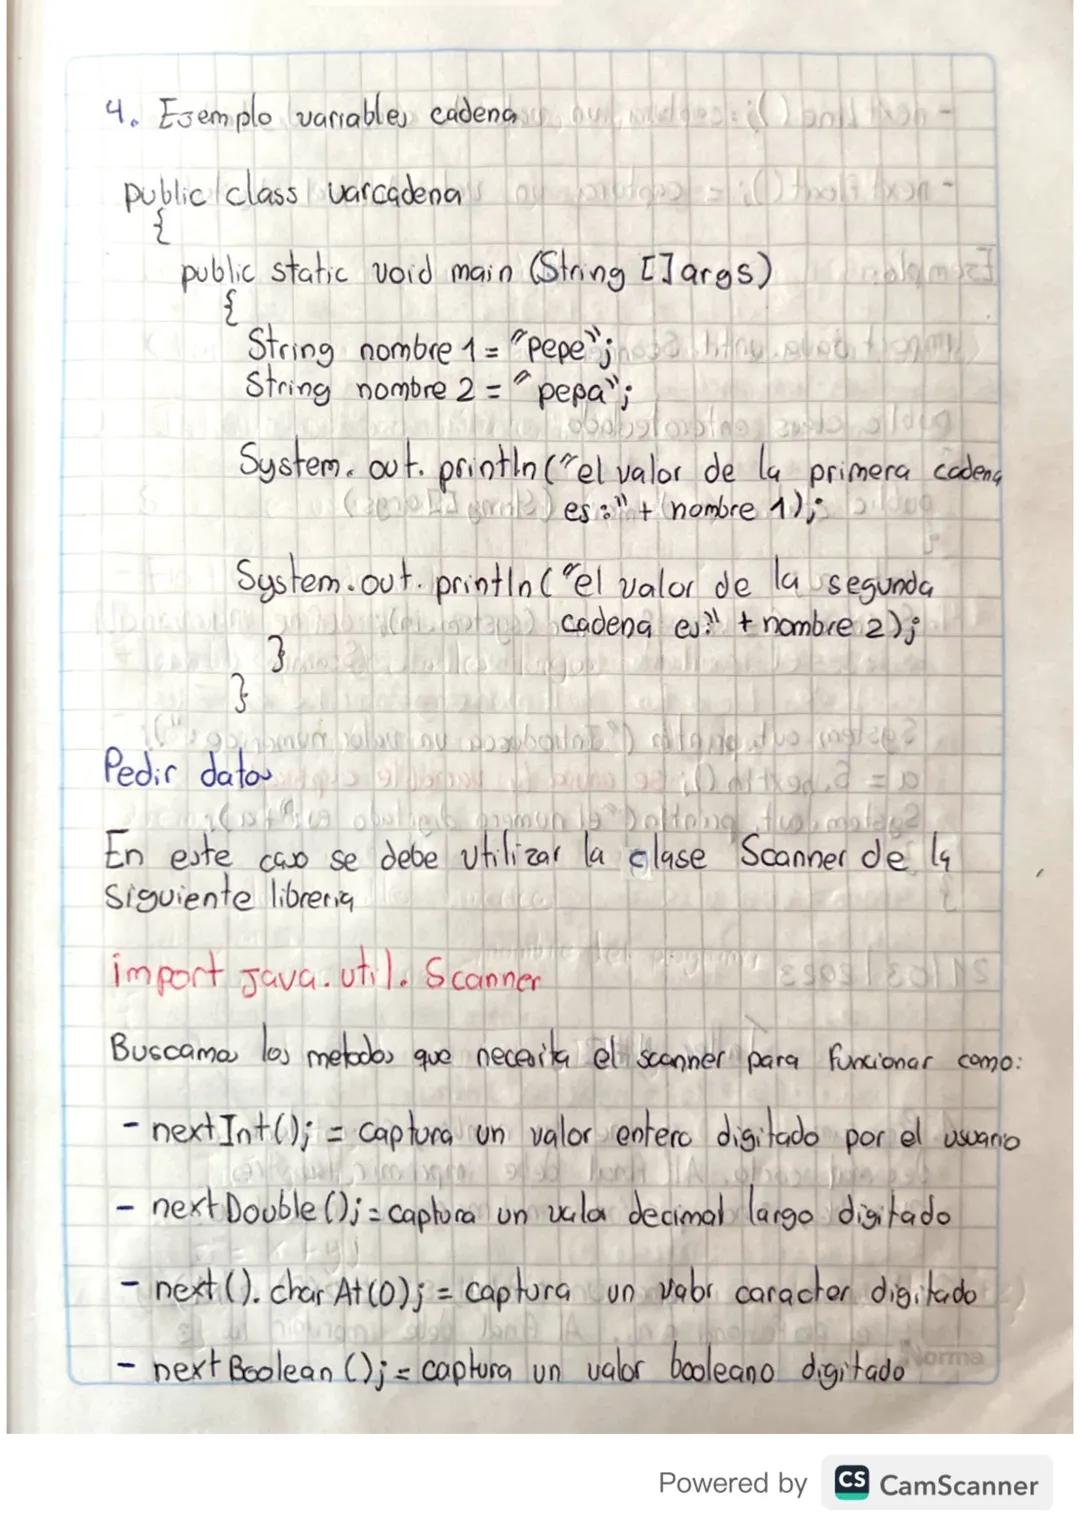 4. Ejemplo variables cadena
public class varcadena
{
public static void main (String []args)
{
String nombre 1 = "pepe";
String nombre 2 = "pepa";
System.out.println("el valor de la primera cadena
es:" + nombre 1);
System.out.println("el valor de la segunda
cadena es:" + nombre 2);
}
}
Pedir datos
En este caso se debe utilizar la clase Scanner de la
siguiente libreria
import java.util.Scanner
Buscamos los metodos que necesita el scanner para funcionar como:
- nextInt(); = captura un valor entero digitado por el usuario
- nextDouble(); = captura un valor decimal largo digitado
- next().charAt(0); = captura un valor caracter digitado
- nextBoolean(); = captura un valor booleano digitado
Norma
Powered by CS CamScanner